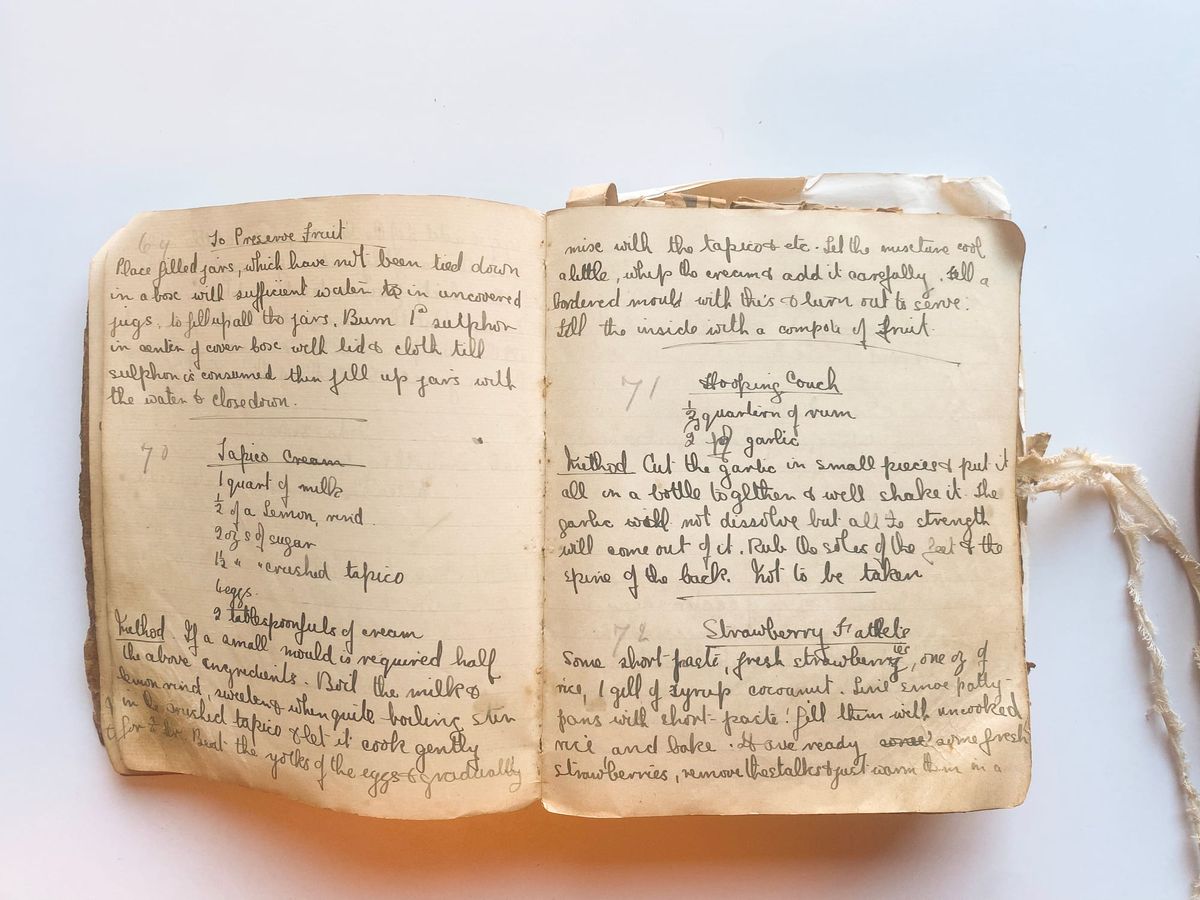 69 To Preserve Fruit
Place filled jars, which have not been tied down
in a box with sufficient water in uncovered
jugs, to fill up all the jars. Burn 1d sulphor
in center of cover box with lid & cloth till
sulphor is consumed then fill up jars with
the water & close down.
70 Tapico Cream
1 quart of milk
½ of a Lemon, rind.
2 ozs of sugar
1½ " " crushed tapico
4 eggs.
2 tablespoonfuls of cream
Method. If a small mould is required half
the above ingredients. Boil the milk &
lemon rind, sweeten & when quite boiling stir
in the crushed tapico & let it cook gently
for ½ hr. Beat the yolks of the eggs & gradually
mixe with the tapico & etc. Let the mixeture cool
a little, whip the cream & add it carefully. Fill a
bordered mould with this & turn out to serve.
Fill the inside with a compote of fruit.
71 Hooping Couch
½ quartern of rum
2 of garlic
Method Cut the garlic in small pieces & put it
all in a bottle togethther & well shake it. The
garlic will not dissolve but all to strength
will come out of it. Rub the soles of the feet & the
spine of the back. Not to be taken
72 Strawberry
Some short paste, fresh strawberries, one oz of
rice, 1 gill of syrup cocoanut. Line smoe patty-
pans with short-paste: fill them with uncooked
rice and bake. Have ready some fresh
strawberries, remove the stalks & just warm them in a